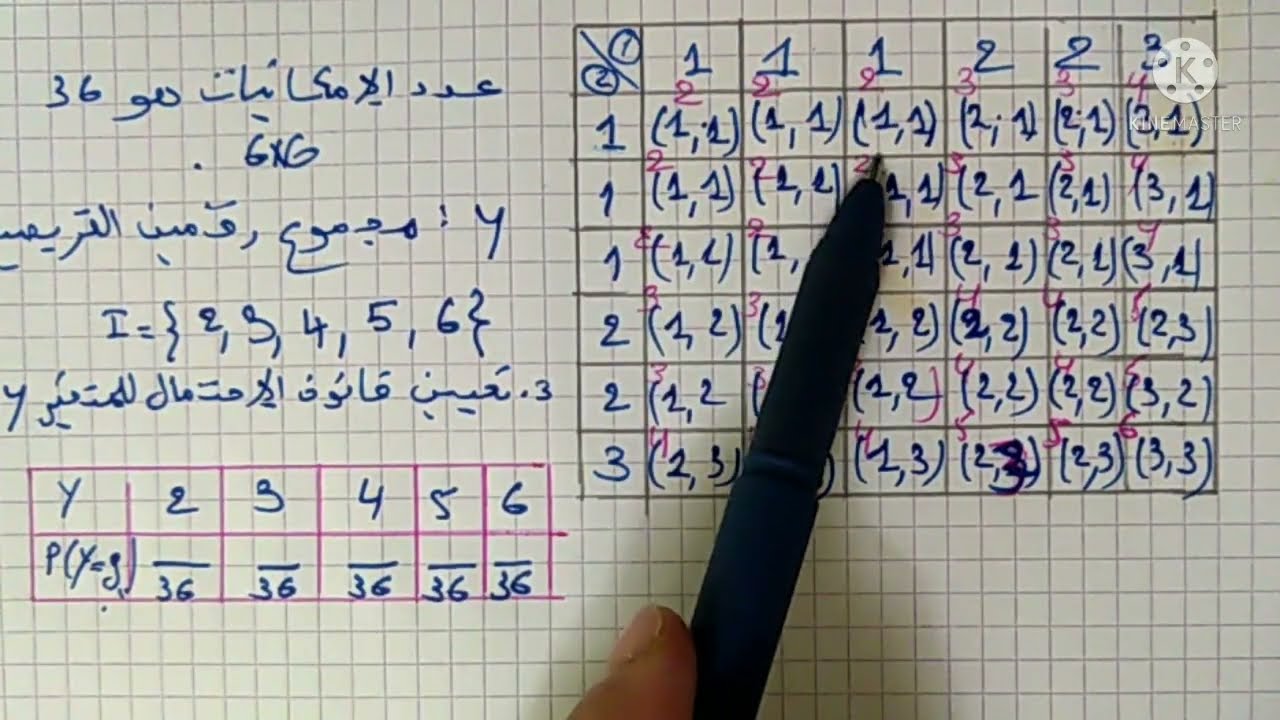 عدد الإمكانيات هو 36
6x6 .
Y : مجموع رقمين القريصـ
I = {2, 3, 4, 5, 6}
3. تعيين قانون الإحتمال للمتغير Y
Y 2 3 4 5 6
P(Y=y) /36 /36 /36 /36 /36
② \ ① 1 1 1 2 2 3
2 2 2 3 3 4
1 (1,1) (1,1) (1,1) (2,1) (2,1) (3,1)
2 2 2 3 3 4
1 (1,1) (1,1) 1,1) (2,1 (2,1) (3,1)
2 2 3 3 4
1 (1,1) (1, 1,1) (2,1) (2,1) (3,1)
3 3 4 4 5
2 (1,2) (1 1,2) (2,2) (2,2) (2,3)
3 3 4 4 5
2 (1,2 (1,2) (2,2) (2,2) (3,2)
4 4 5 5 6
3 (1,3) ) (1,3) (2,3) (2,3) (3,3)
K
KINEMASTER